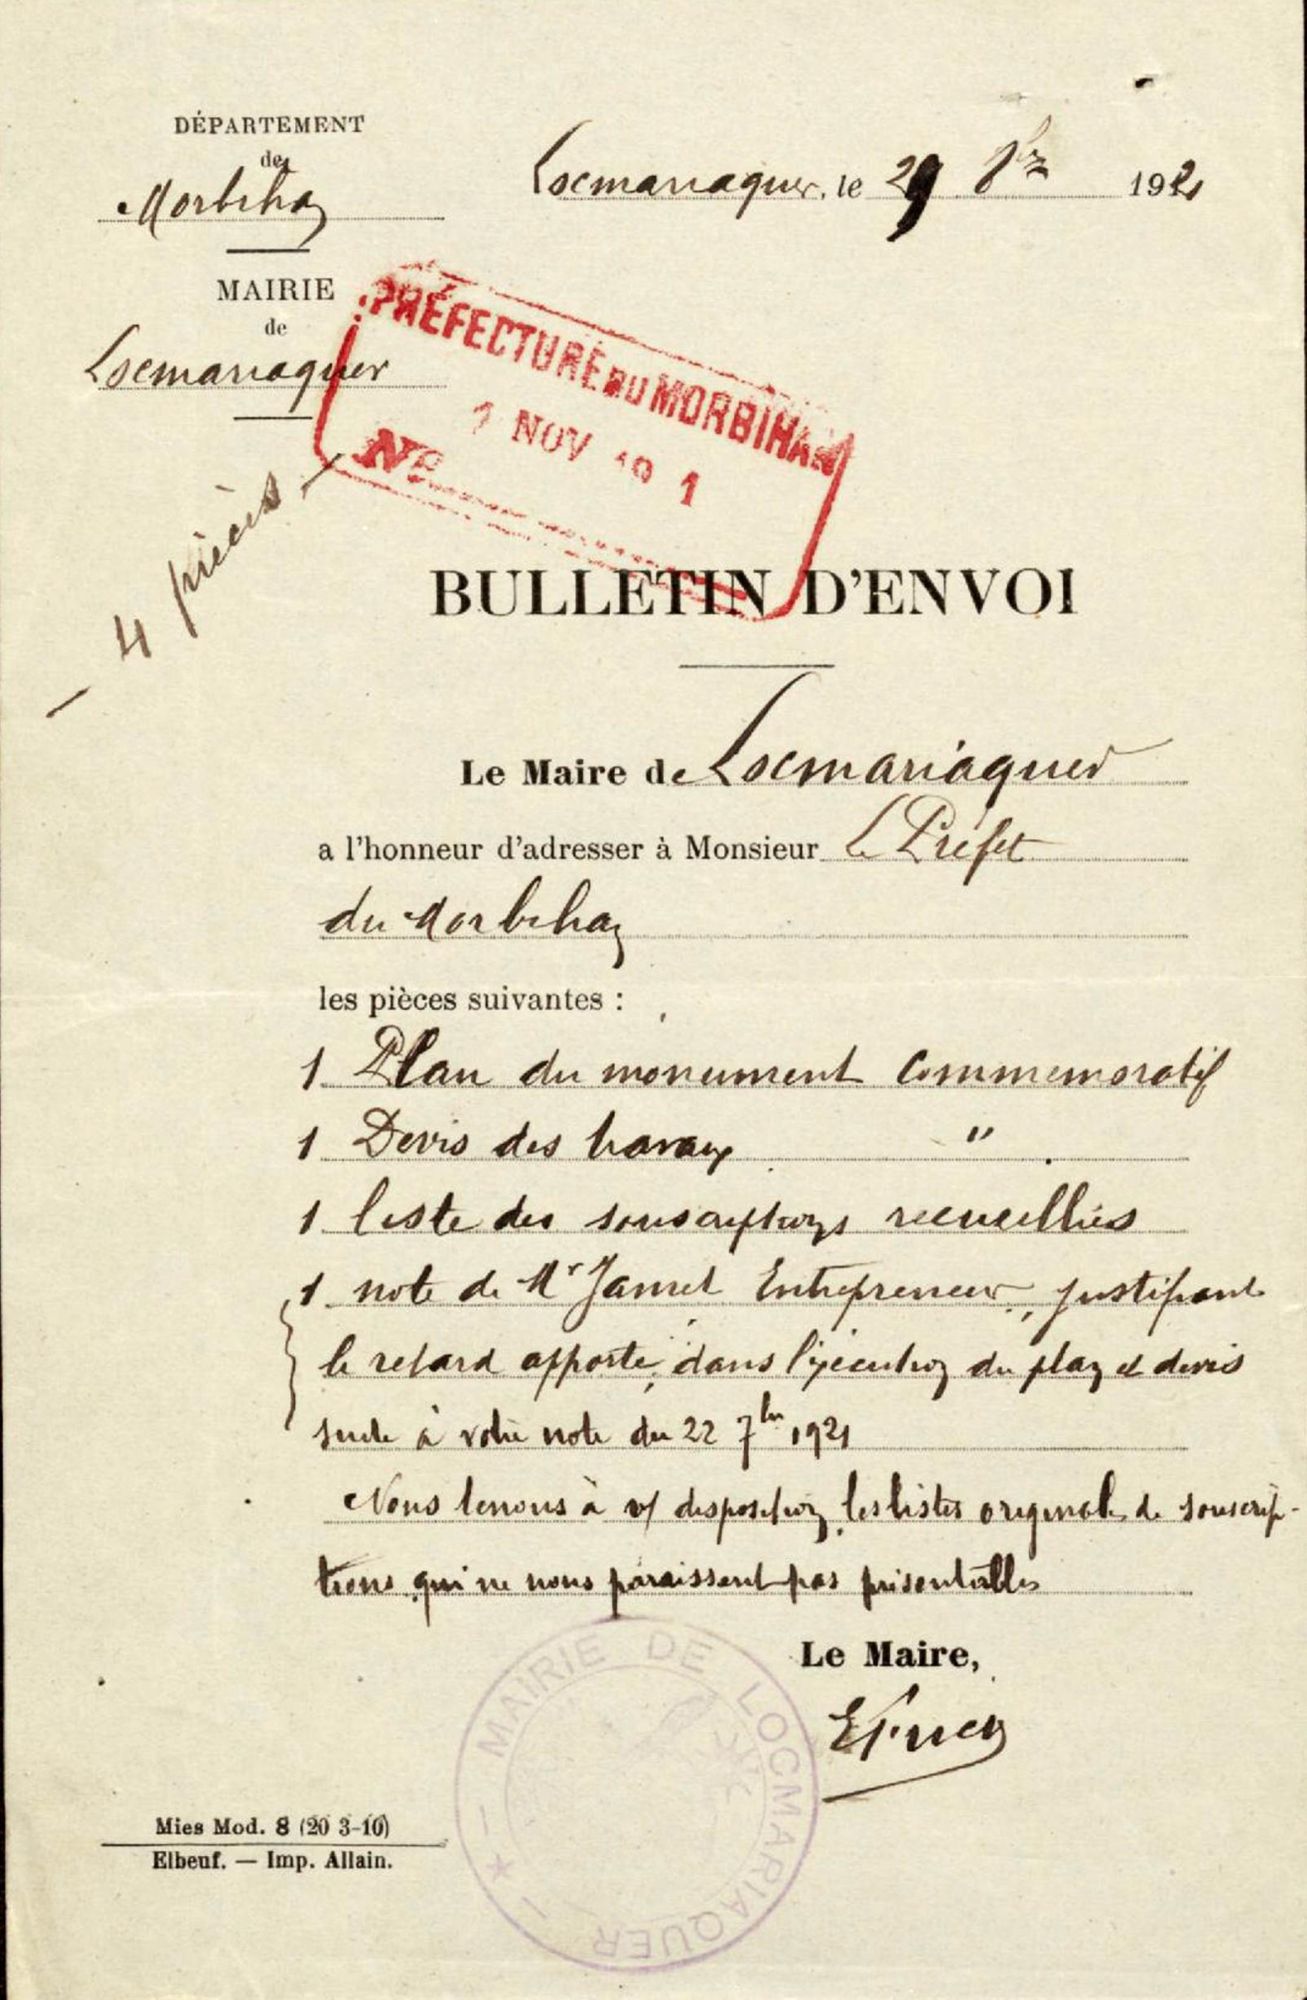 DÉPARTEMENT
de
Morbihan
Locmariaquer, le 29 8bre 1921
MAIRIE
de
Locmariaquer
PRÉFECTURE DU MORBIHAN
NOV 19 1
No
- 4 pièces -
BULLETIN D'ENVOI
Le Maire de Locmariaquer
a l'honneur d'adresser à Monsieur Le Préfet
du Morbihan
les pièces suivantes :
1 Plan du monument Commémoratif
1 Devis des travaux "
1 liste des souscriptions recueillies
1 note de Mr Jamet Entrepreneur, justifiant
le retard apporté dans l'exécution du plan et devis
suite à votre note du 22 7bre 1921
Nous tenons à v/ disposition les listes originales de souscrip-
tions qui ne nous paraissent pas présentables
Le Maire,
MAIRIE DE LOCMARIAQUER
Mies Mod. 8 (20 3-10)
Elbeuf. — Imp. Allain.